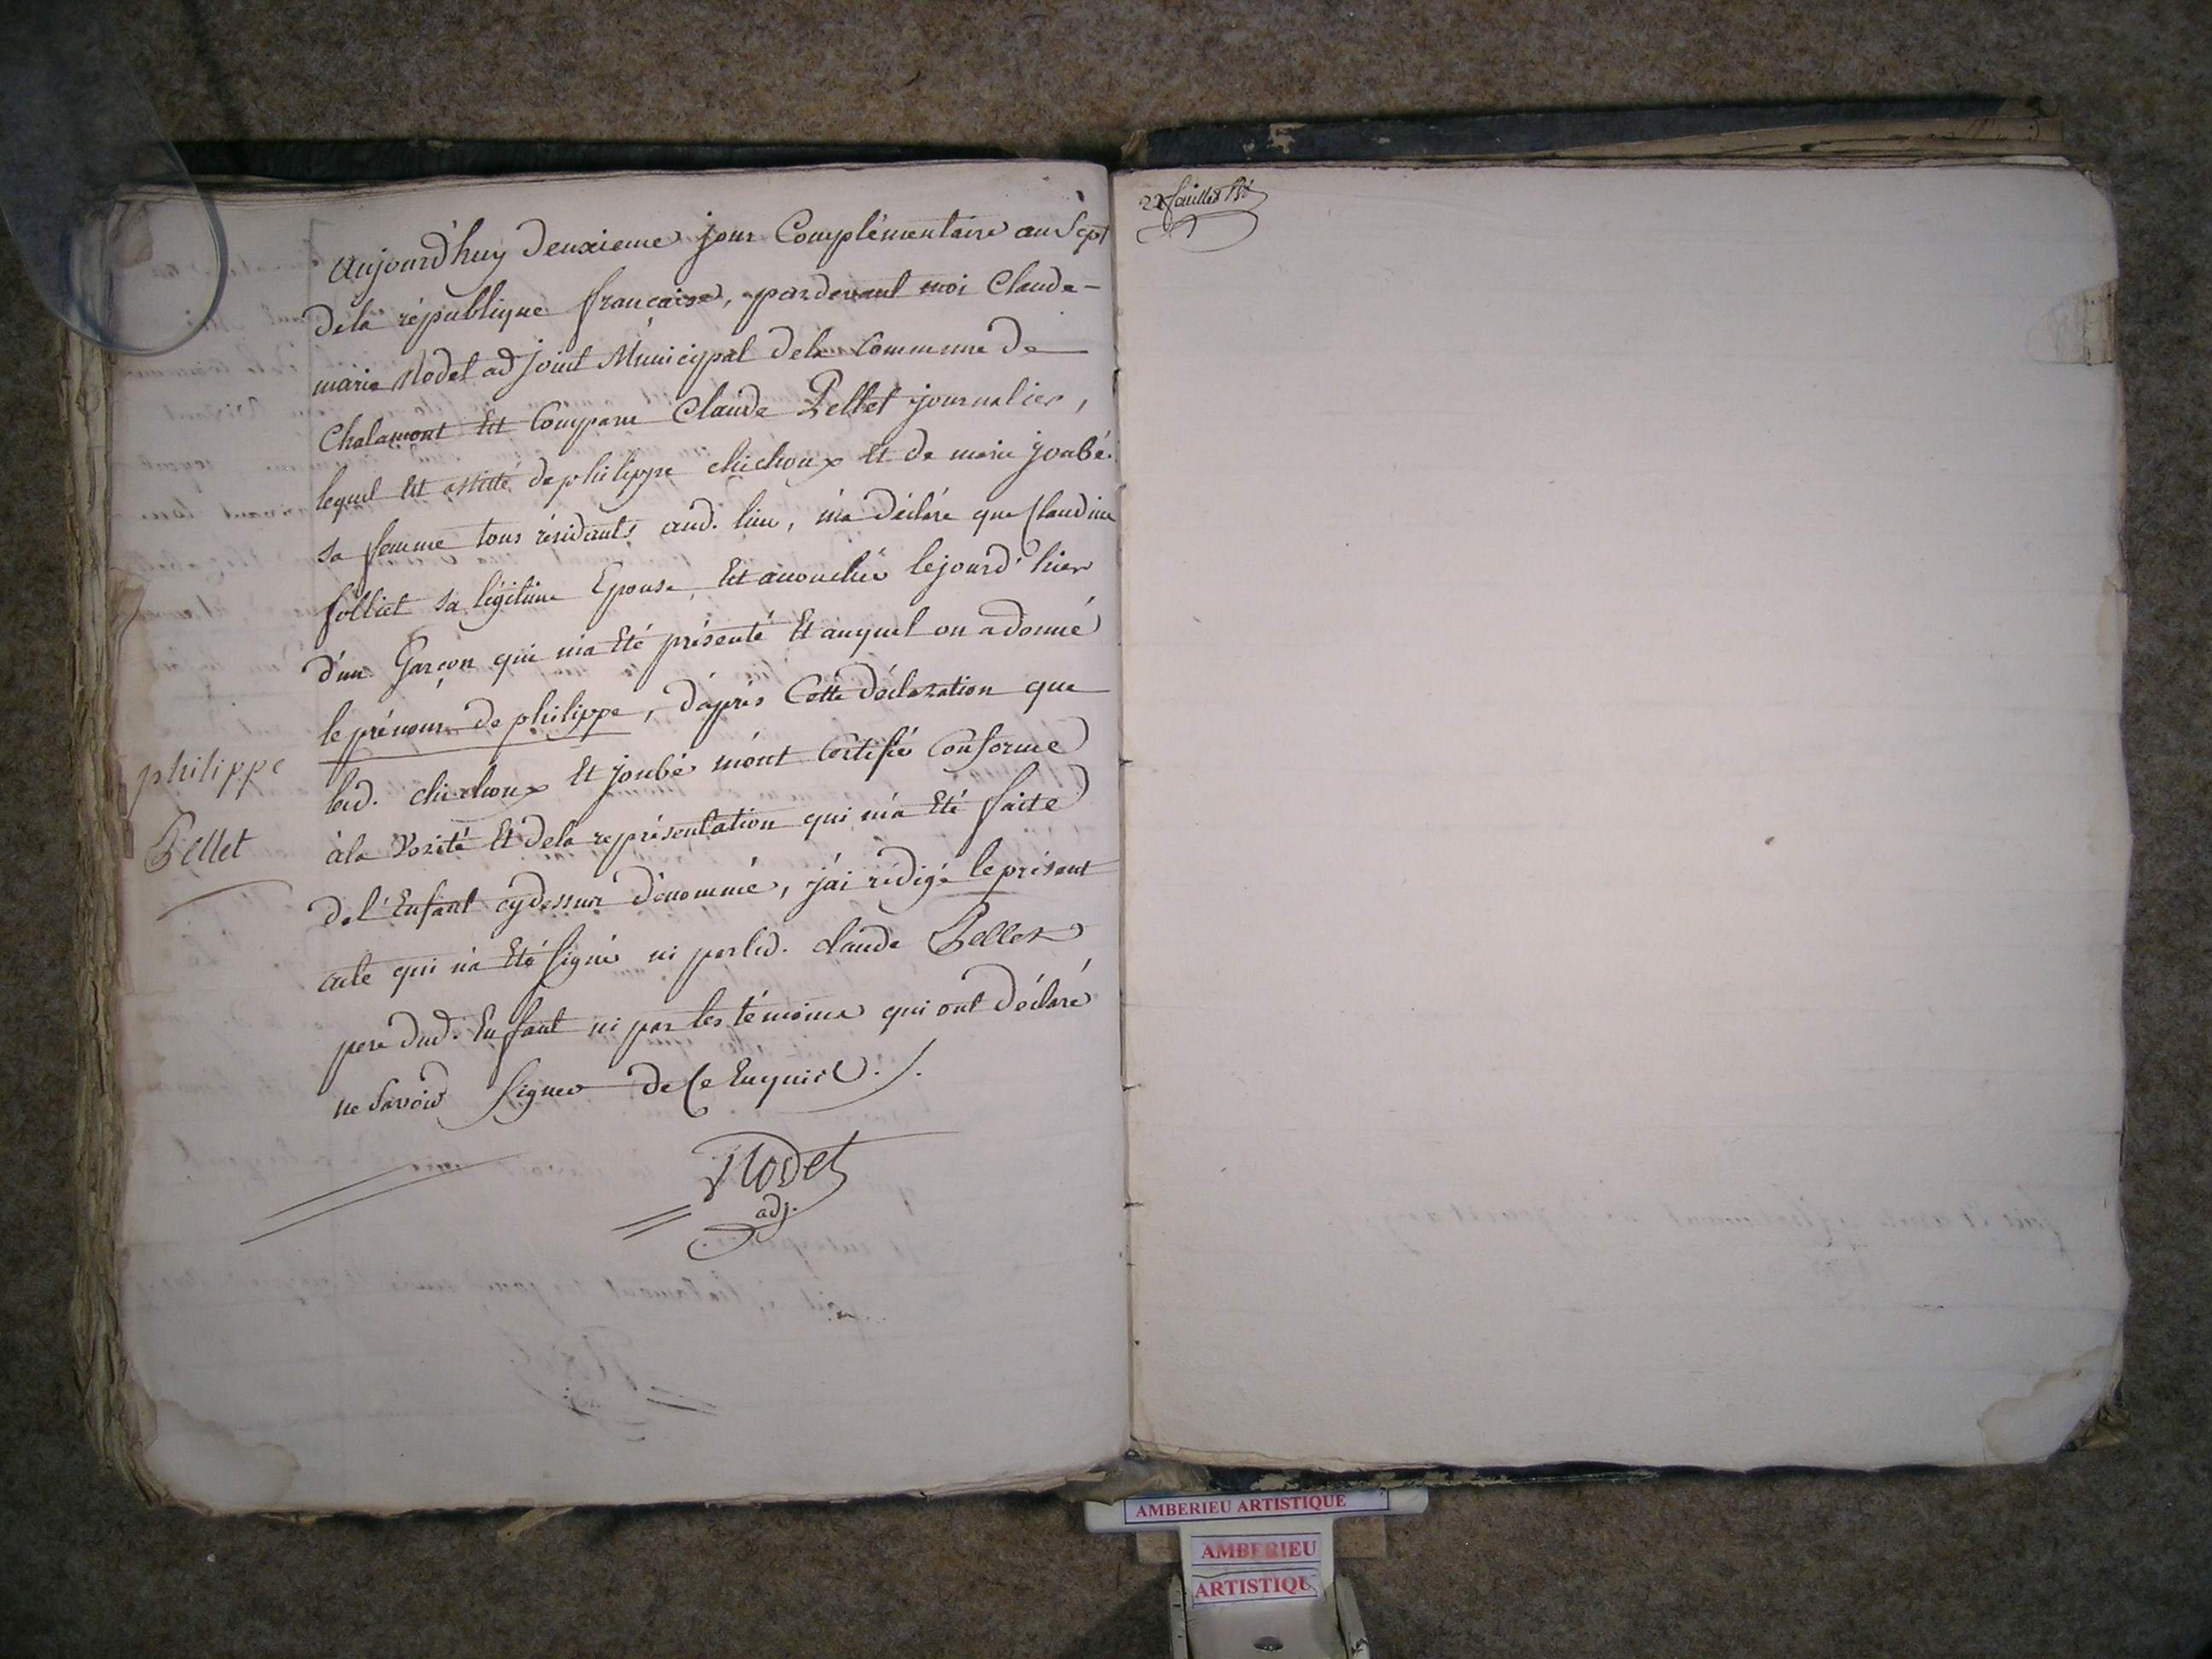 Aujourd'huy deuxieme jour Complémentaire an Sept
dela république française, pardevant moi Claude-
marie Nodet adjoint Municypal dela Commune de
Chalamont Est Comparu Claude Pellet journalier,
lequel Est assitté de philippe chichoux Et de marie joubé.
sa femme tous résidants aud. lieu, m'a déclaré que Claudine
folliet sa légitime Epouse, Est accouchée lejourd'hier
d'un Garçon qui m'a Eté présenté Et auquel on a donné
le prénom de philippe, d'après Cette déclaration que
led. chichoux Et joubé m'ont Certifié Conforme
àla vérité Et dela représentation qui m'a Eté faite
philippe
Pellet
del'Enfant cydessus dénommé, j'ai rédigé leprésent
acte qui n'a Eté Signé ni parled. claude Pellet
pere dud. Enfant ni par les témoins qui ont déclaré
ne Savoir Signer de Ce Enquis ./.
Nodet
adj.
feuillet
AMBERIEU ARTISTIQUE
AMBERIEU
ARTISTIQU